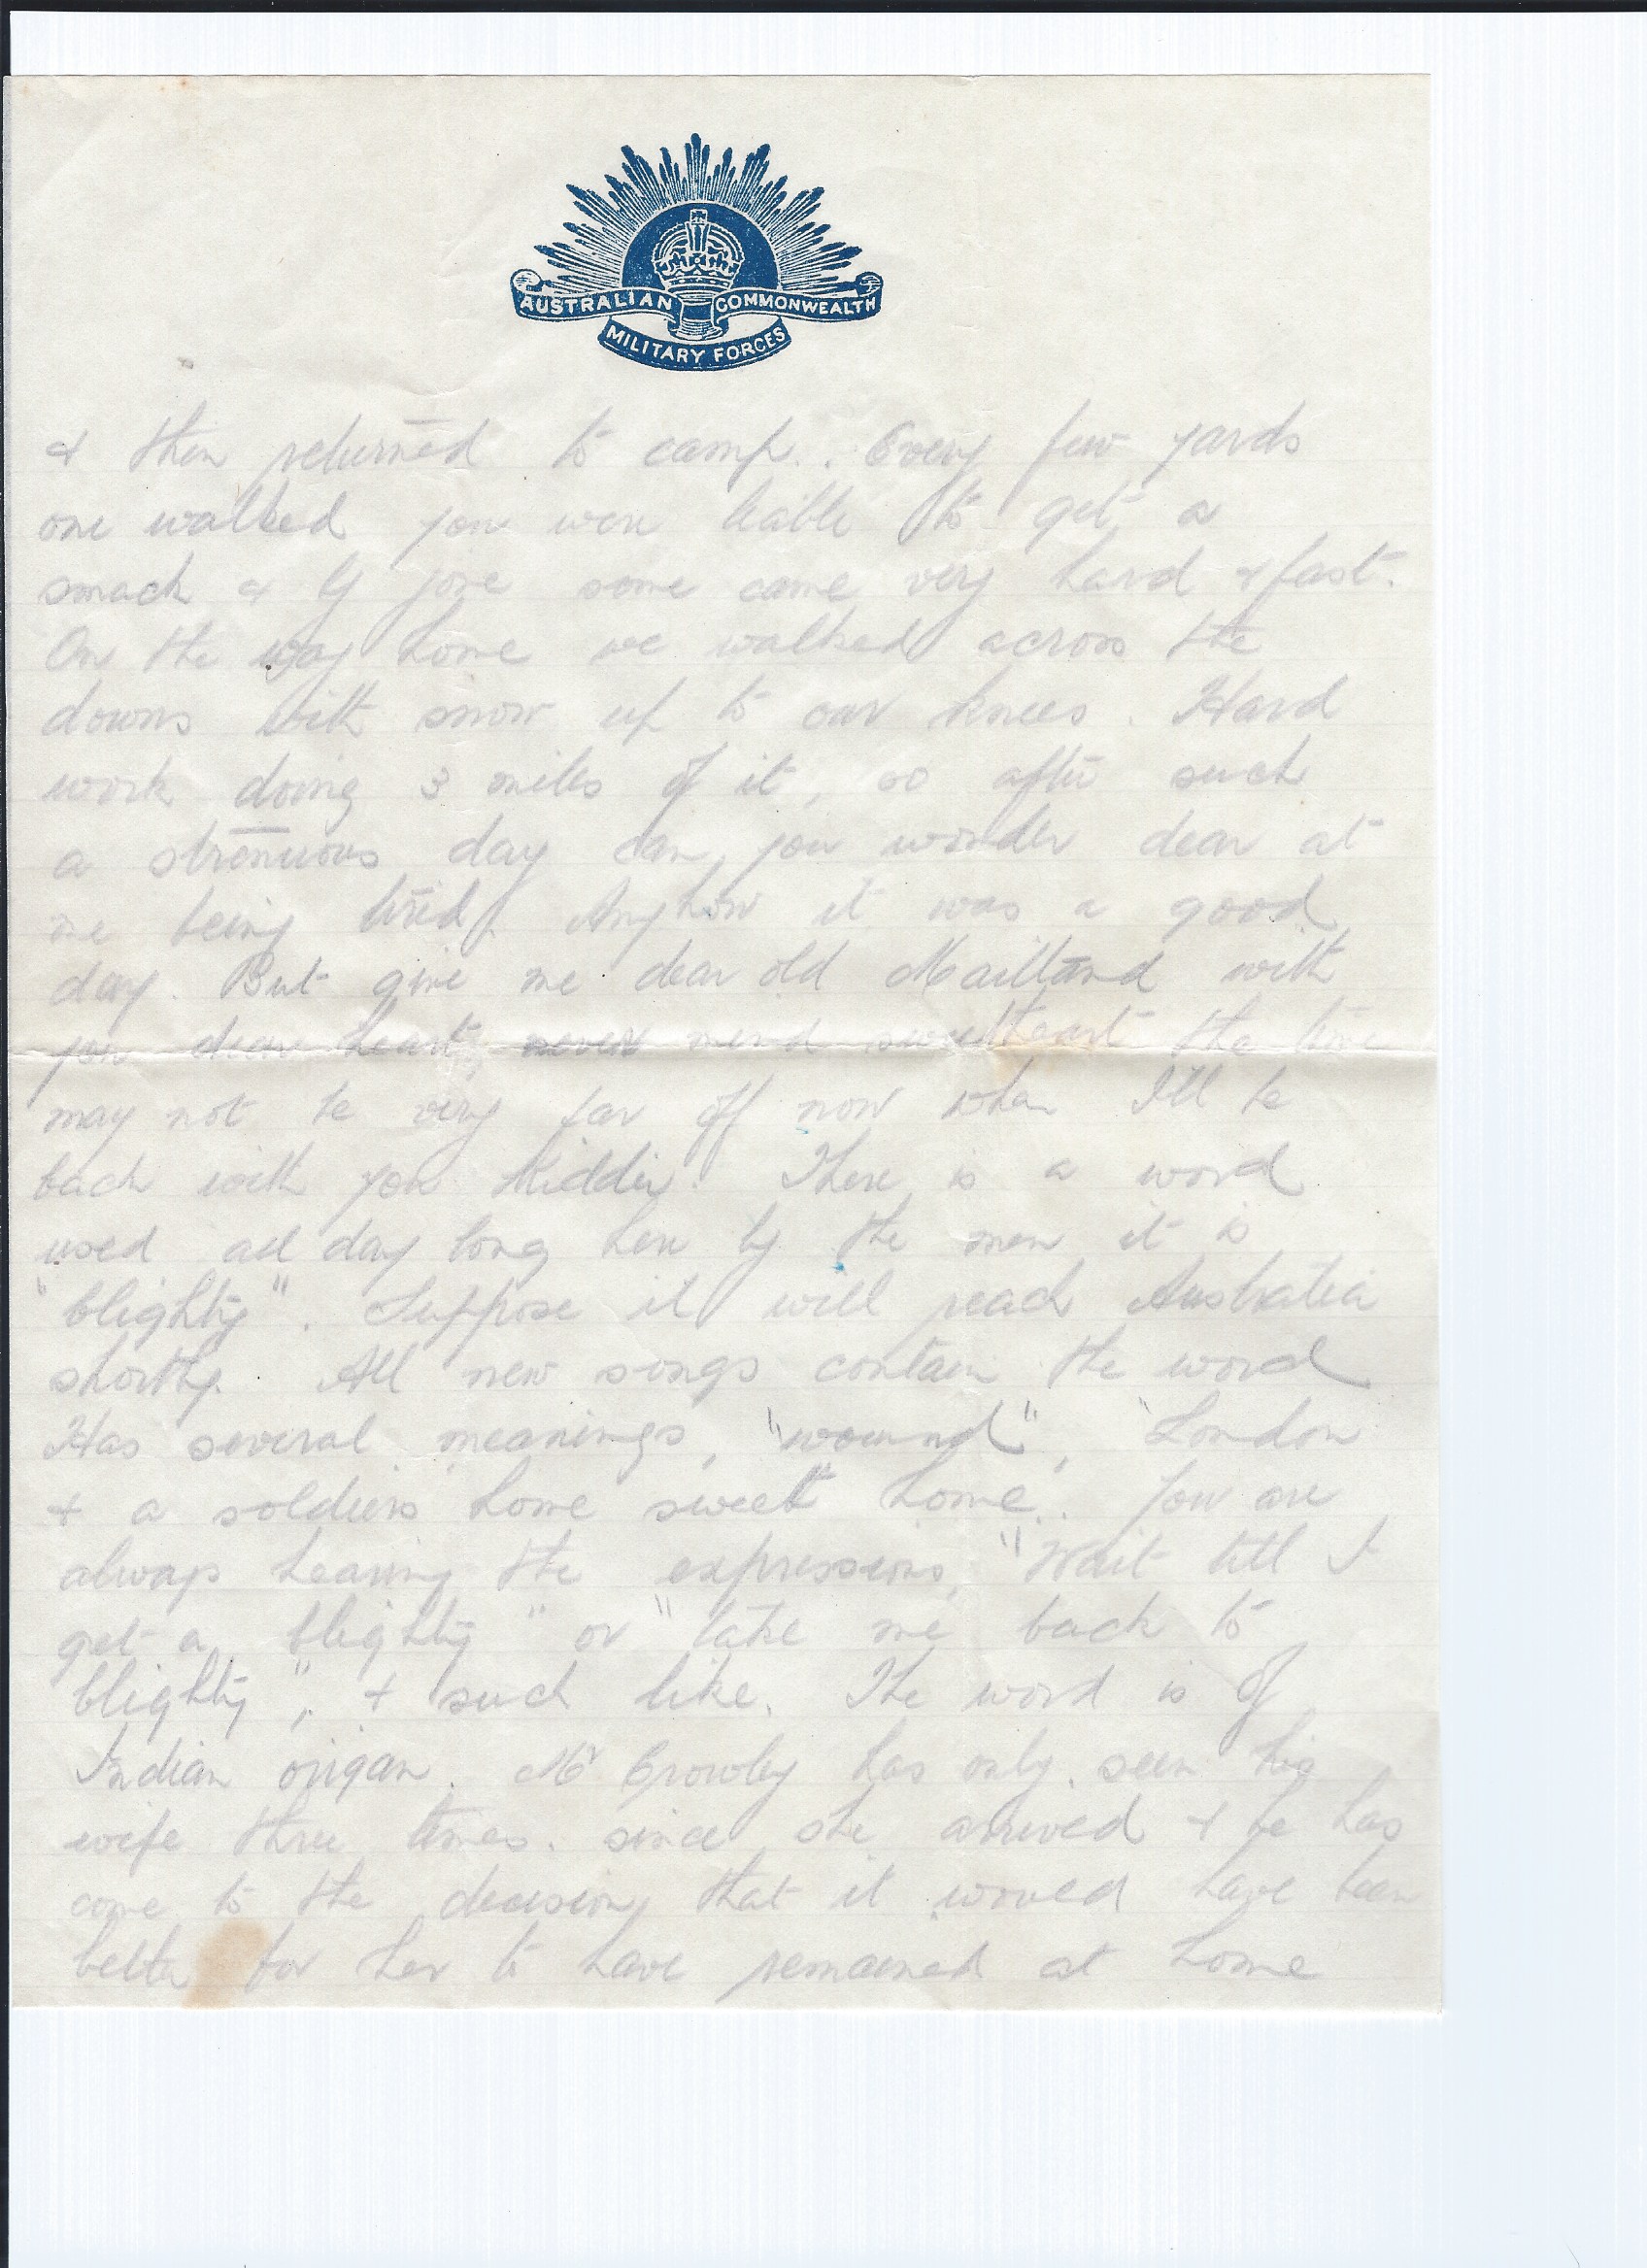 AUSTRALIAN COMMONWEALTH
MILITARY FORCES
& then returned to camp. Every few yards
one walked you were liable to get a
smack & by jove some came very hard & fast.
On the way home we walked across the
downs with snow up to our knees. Hard
work doing 3 miles of it, so after such
a strenuous day can you wonder dear at
me being tired. Anyhow it was a good
day. But give me dear old Maitland with
you dear heart, never mind sweetheart the time
may not be very far off now when I'll be
back with you Kiddie. There is a word
used all day long here by the men it is
"blighty". Suppose it will reach Australia
shortly. All new songs contain the word
Has several meanings, "wound", "London
& a soldiers home sweet home. You are
always hearing the expressions, "Wait till I
get a blighty" or "take me back to
blighty", & such like. The word is of
Indian origan. Mr Crowley has only seen his
wife three times since she arrived & he has
come to the decision that it would have been
better for her to have remained at home